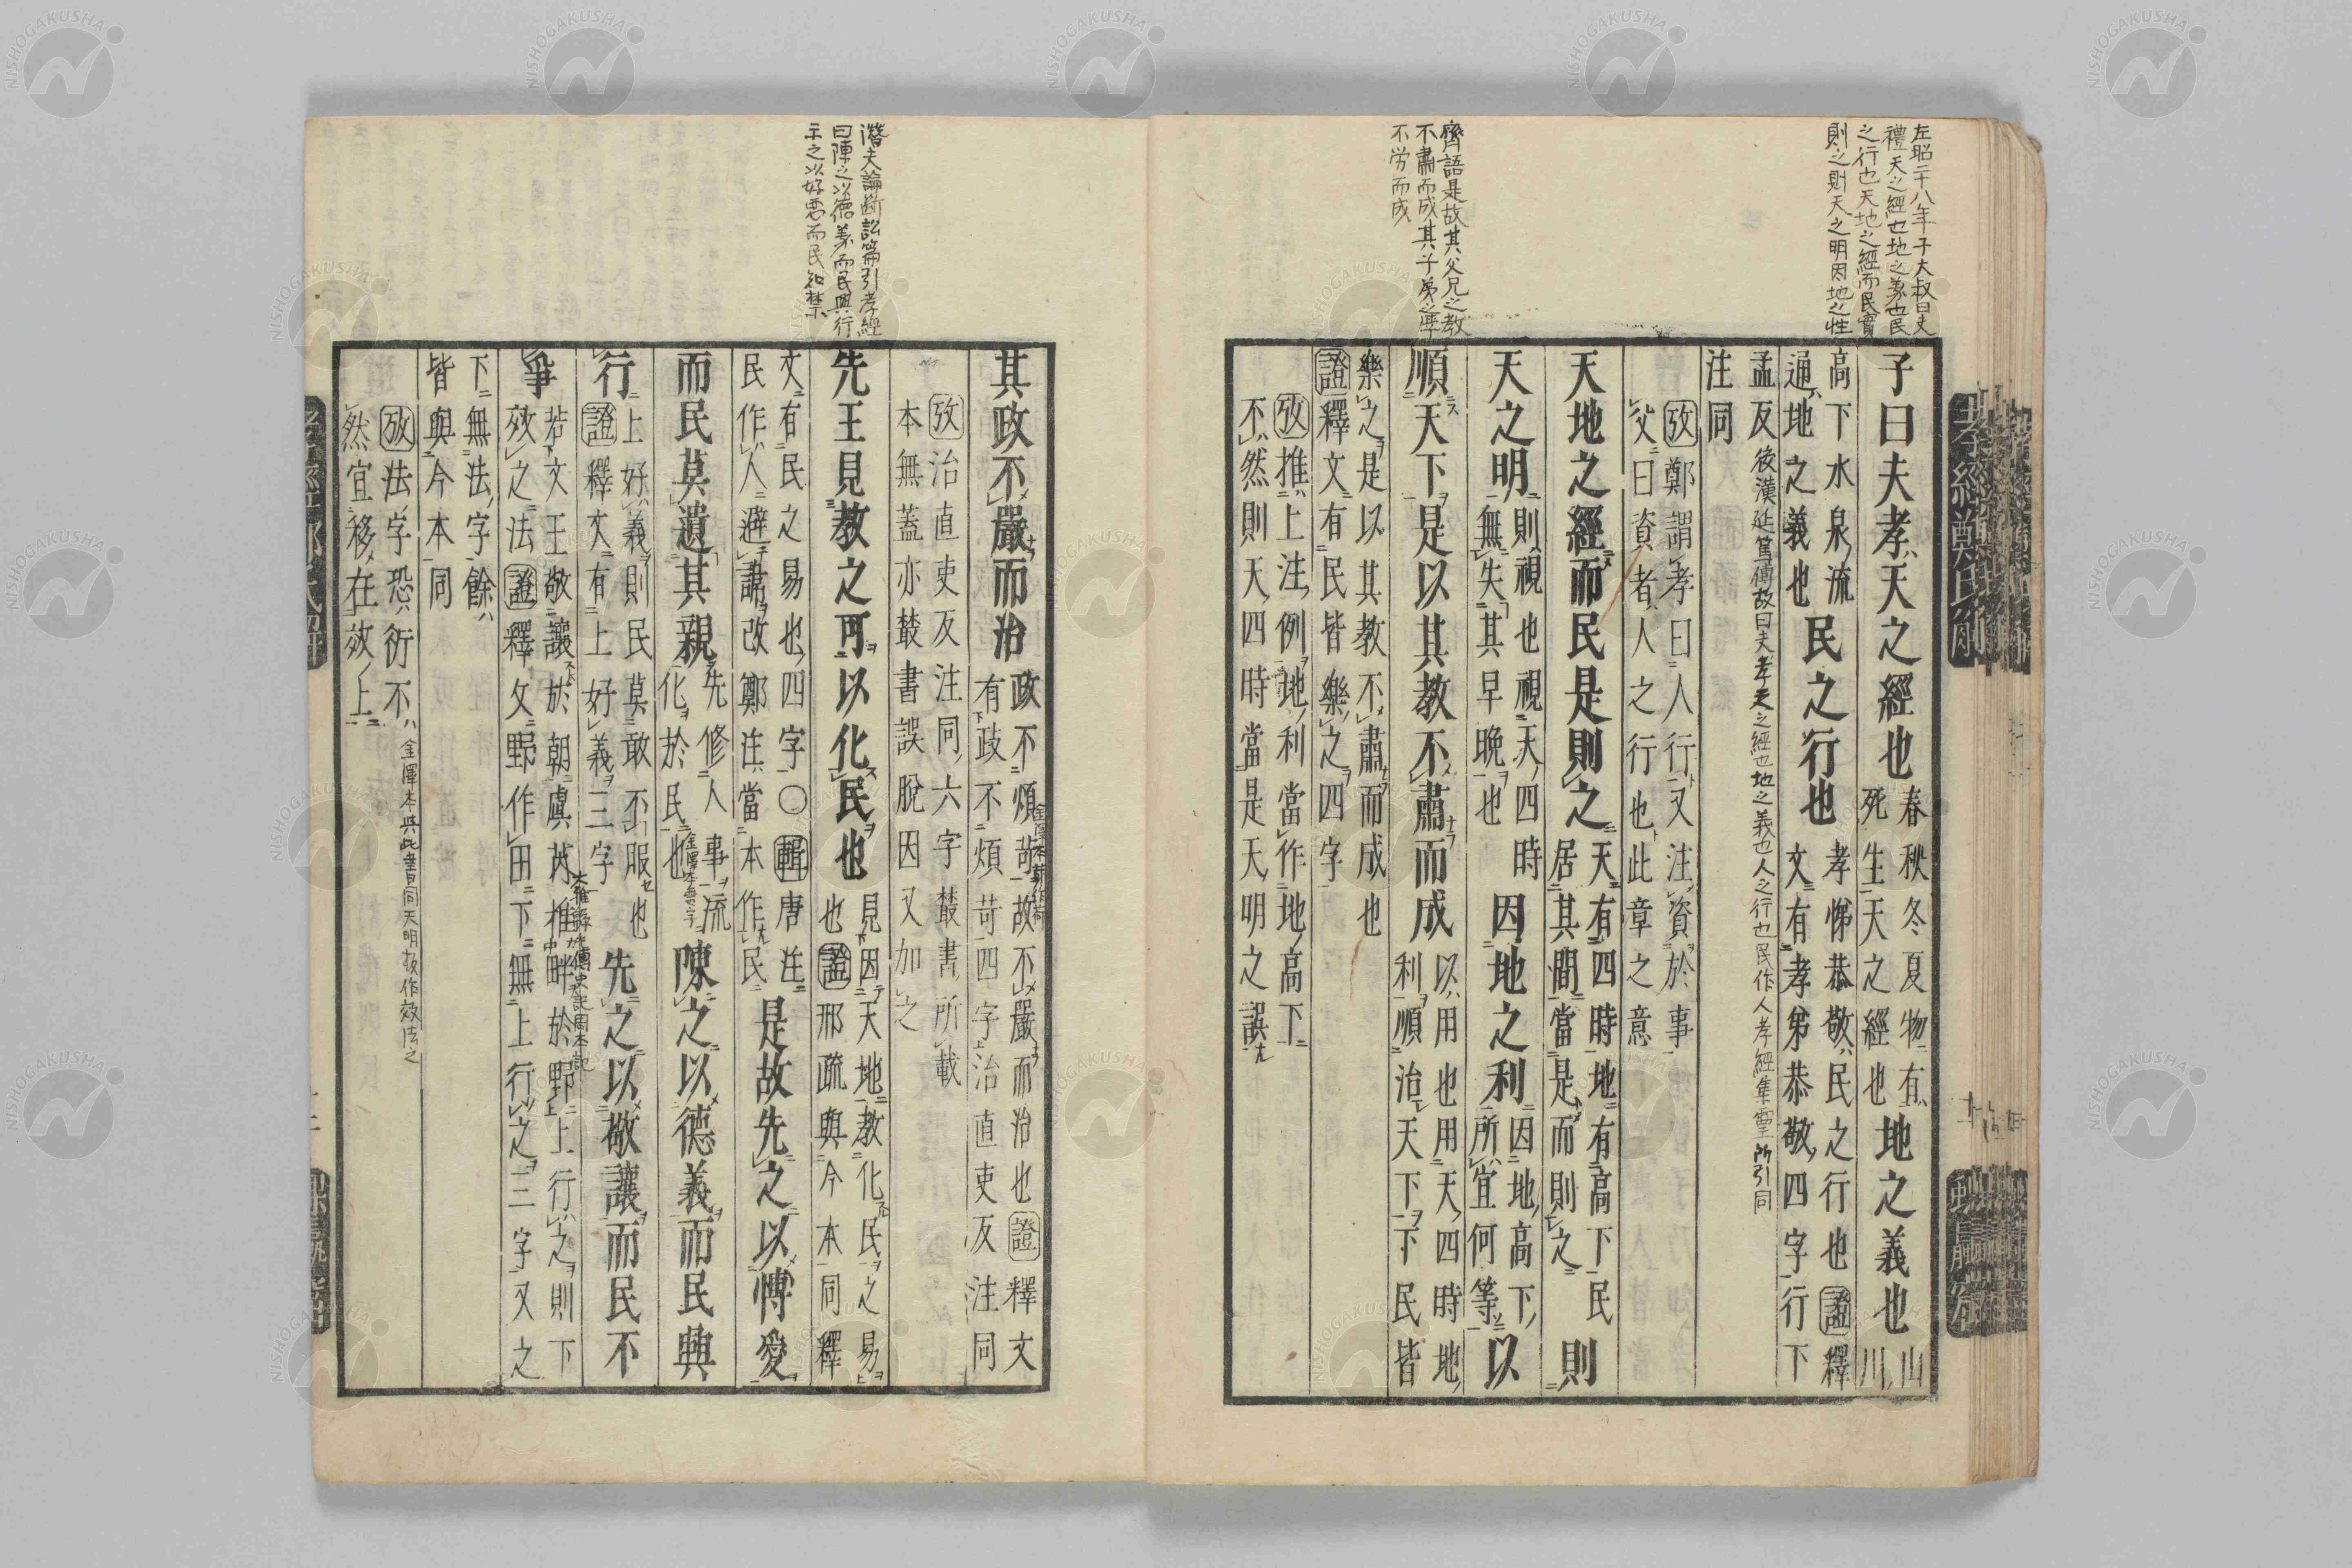 左昭二十八年子大叔曰夫
禮天之經也地之義也民
之行也天地之經而民實
則之則天之明因地之性
齊語是故其父兄之教
不肅而成其子弟之學
不労而成
子曰夫孝天之經也春秋冬夏物有死生天之經也地之義也山川
高下水泉流通地之義也民之行也孝悌恭敬民之行也證釋文有孝弟恭敬四字行下
孟反後漢延篤傳故曰夫孝天之經也地之義也人之行也民作人孝經集霊所引同
注同
攷鄭謂孝曰人行又注資於事
父曰資者人之行也此章之意
天地之經而民是則之天有四時地有高下民居其間當是而則之則
天之明則視也視天四時無失其早晚也因地之利因地高下所宜何等以
順天下是以其教不肅而成以用也用天四時地利順治天下下民皆
樂之是以其教不肅而成也
證釋文有民皆樂之四字
攷推上注例地利當作地高下
不然則天四時當是天明之誤
潛夫論斷訟篇引孝經
曰陳之以德義而民興行
示之以好惡而民知禁
其政不嚴而治政不煩苛故不嚴而治也證釋文有政不煩苛四字治直吏反注同
攷治直吏反注同六字叢書所載
本無蓋亦叢書誤脫因又加之
先王見教之可以化民也見因天地教化民之易也證邢疏與今本同釋
文有民之易也四字〇輯唐注民作人避諱改鄭注當本作民是故先之以愽愛
而民莫遺其親先修人事流化於民也陳之以德義而民興
行上好義則民莫敢不服也證釋文有上好義三字先之以敬讓而民不
爭若文王敬讓於朝虞芮推畔於野上行之則下效之法證釋文野作田下無上行之三字又之
下無法字餘
皆與今本同
攷法字恐衍不
然宜移在效上
金澤本與此書同天明板作效法之
孝經鄭氏解